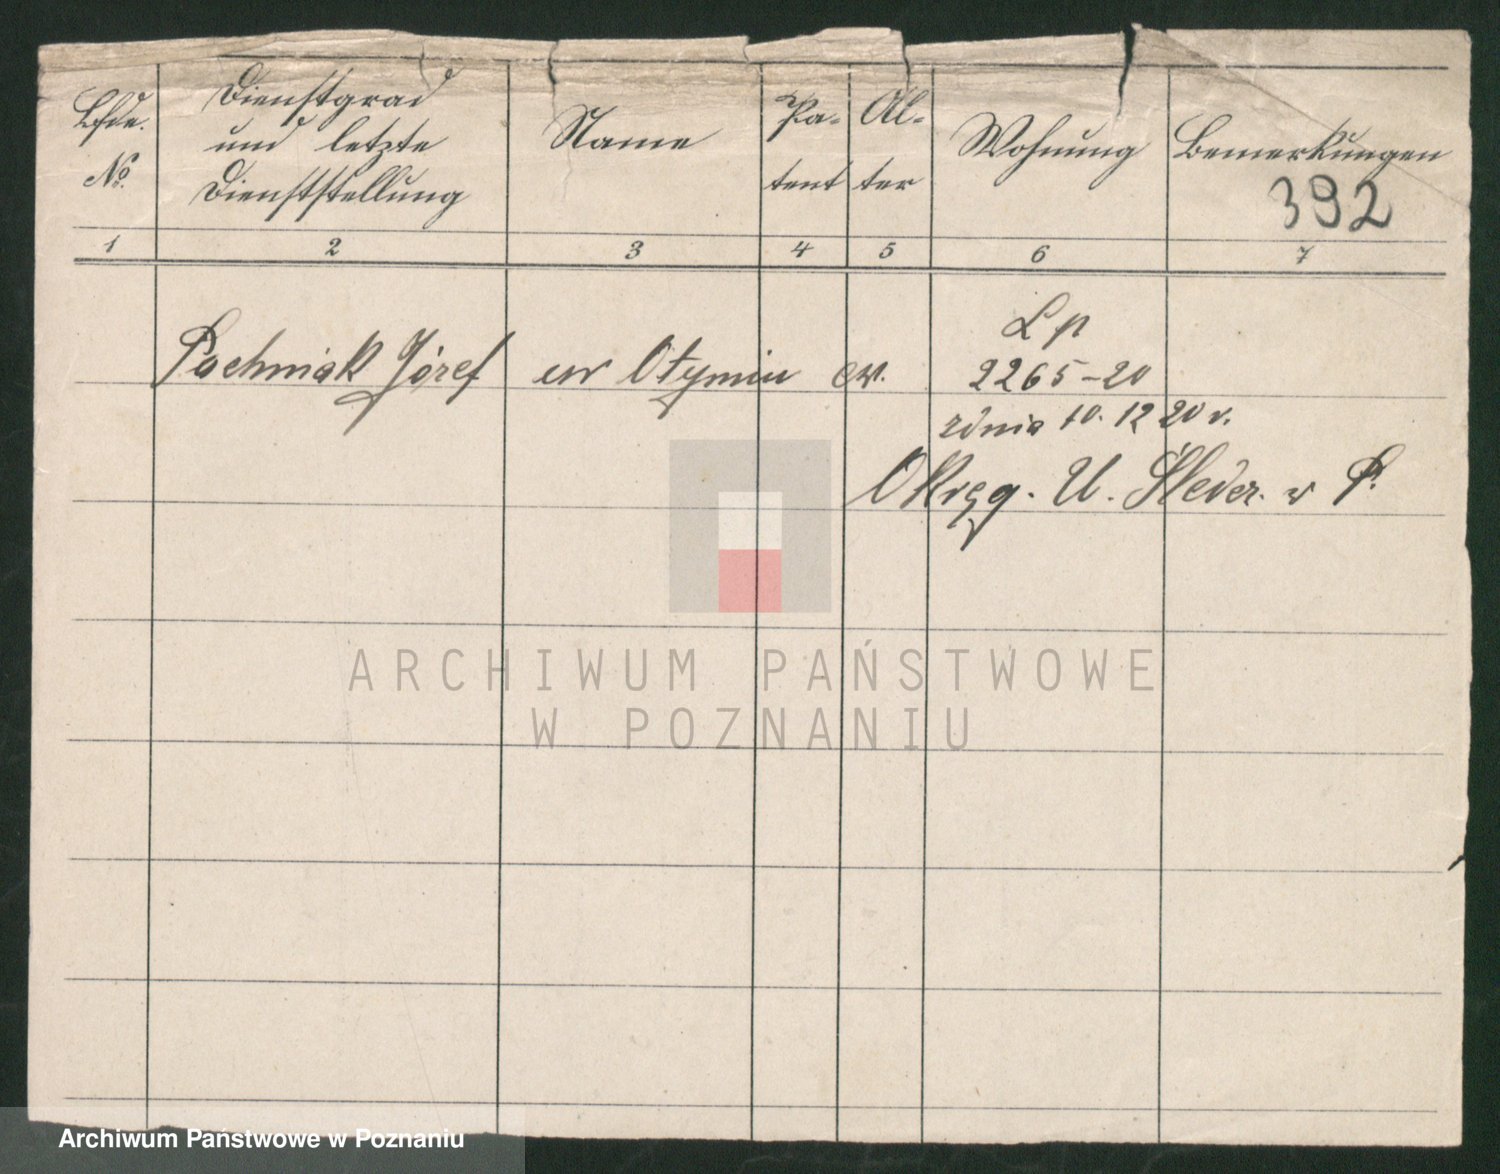 Lfde. No.
Dienstgrad und letzte Dienststellung
Name
Patent
Alter
Wohnung
Bemerkungen
392
1 2 3 4 5 6 7
Lp
Pachniak Józef w ew.
2265-20
z dnia 10. 12 20 r.
Okręg. U. Śledcz. w P.
ARCHIWUM PAŃSTWOWE
W POZNANIU
Archiwum Państwowe w Poznaniu